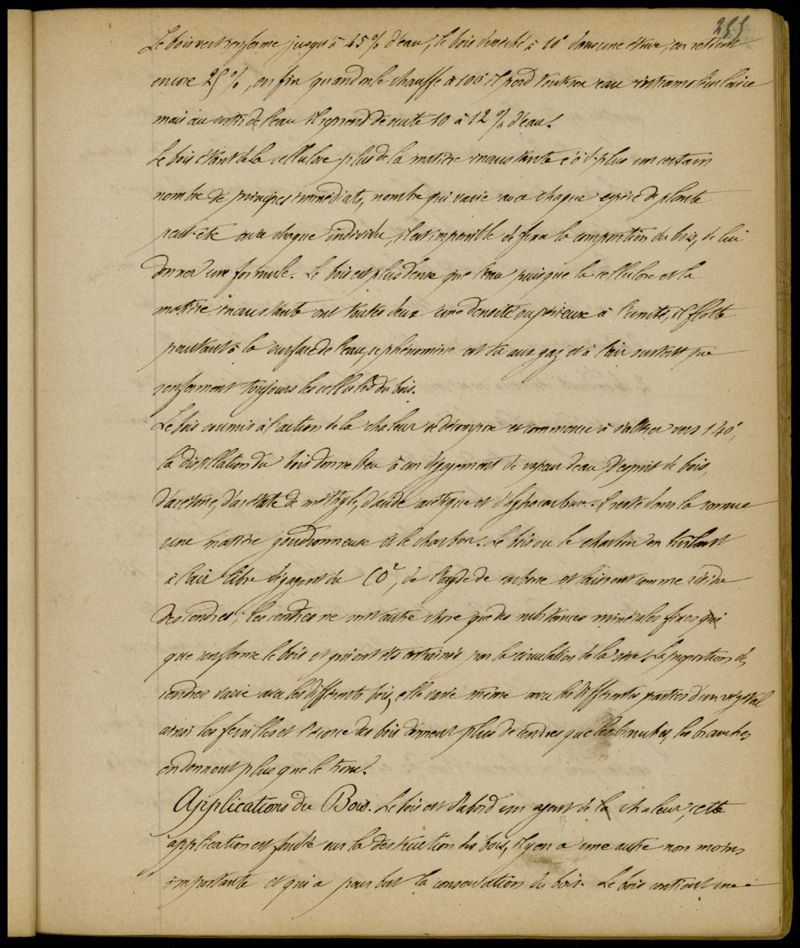 255
Le bois vert renferme jusqu'à 45 % d'eau, le bois desséché à 10° dans une étuve en retient
encore 25 %, enfin quand on le chauffe à 100° il perd toute son eau
mais au contact de l'eau il reprend de suite 10 à 12 % d'eau.
Le bois étant de la cellulose plus de la matière incrustante c'à'd. plus un certain
nombre de principes immédiats, nombre qui varie avec chaque espèce de plante
peut-être avec chaque individu, il est impossible de fixer la composition du bois, de lui
donner une formule. Le bois est plus dense que l'eau puisque la cellulose et la
matière incrustante ont toutes deux une densité supérieure à l'unité, il flotte
pourtant à la surface de l'eau, ce phénomène est dû aux gaz et à l'air surtout que
renferment toujours les cellules du bois.
Le bois soumis à l'action de la chaleur se décompose et commence à s'altérer vers 140°,
la distillation du bois donne lieu à un dégagement de vapeur d'eau d'esprit de bois,
d'acétone, d'acétate de méthyle, d'acide acétique et d'hydrocarbures. Il reste dans la cornue
une matière goudronneuse et le charbon. Le bois ou le charbon en brûlant
à l'air libre dégagent du CO², de l'oxyde de carbone et laissent comme résidu
des cendres; les cendres ne sont autre chose que des substances minérales fixes
que renferme le bois et qui ont été entrainées par la circulation de la sève. La proportion de
cendres varie avec les différents bois, elle varie même avec les différentes parties d'un végétal
ainsi les feuilles et l'écorce des bois donnent plus de cendres que les branches, les branches
en donnent plus que le tronc.
Applications du Bois. Le bois est d'abord un agent de la chaleur, cette
application est fondée sur la destruction du bois, il y en a une autre non moins
importante et qui a pour but la conservation du bois. Le bois contient une